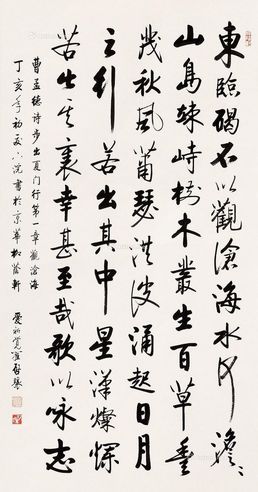 東臨碣石以觀滄海水何澹〻
山島竦峙樹木叢生百草豐
茂秋風蕭瑟洪波涌起日月
之行若出其中星漢燦爛
若出其裏幸甚至哉歌以咏志
曹孟德诗步出夏门行第一章觀滄海
丁亥年初夏
書於京華
軒